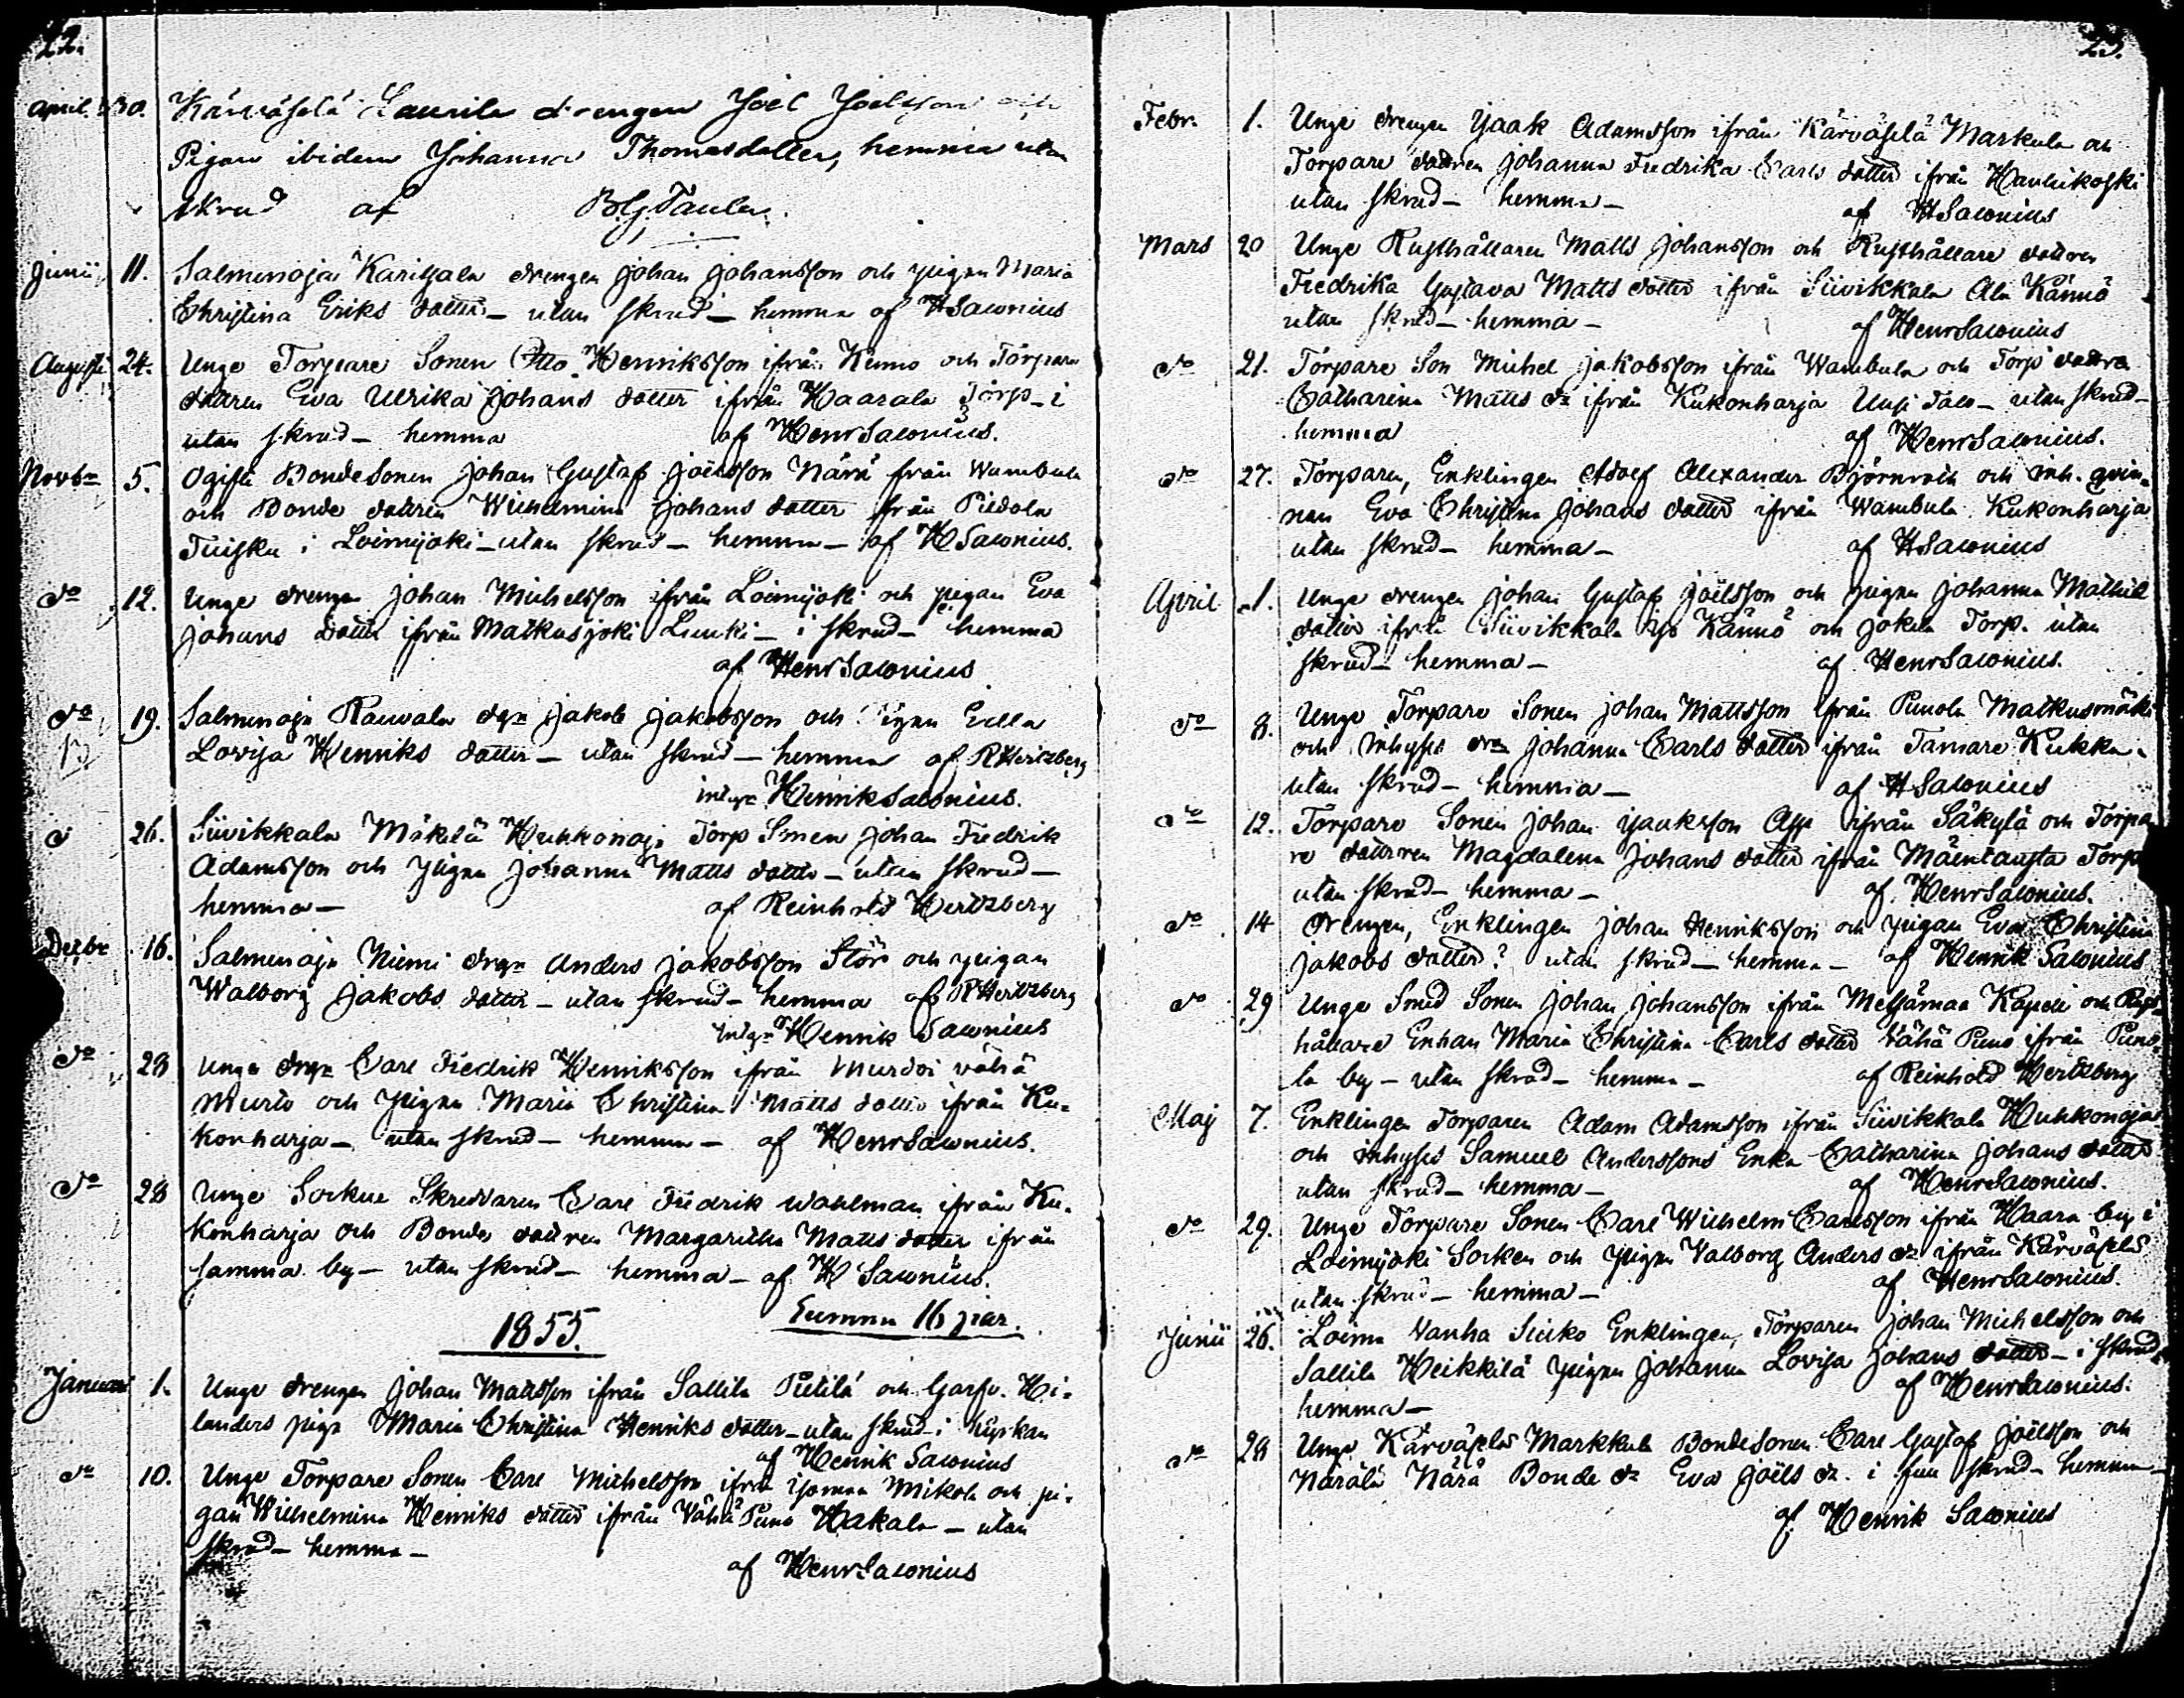 22.
April. 30. Kärväselä Laurila drengen Joel Joelsson och
Pigan ibidem Johanna Thomasdotter, hemma utan
skrud af B G Taulen.
Junii 11. Salmenoja Karitzala drengen Johan Johansson och pigan Maria
Christina Eriks dotter – utan skrud – hemma af HSalonius
Augusti 24. Unge Torpare Sonen Otto Henriksson ifrån Kumo och Torpare
dottren Eva Ulrika Johans dotter ifrån Haarala Torp – i
utan skrud – hemma af HenrSalonius.
Novbr 5. Ogifte BondeSonen Johan Gustaf Joelsson Närä från Wambula
och Bonde dottren Wilhelmina Johans dotter från Piedola
Tuisku i Loimijoki – utan skrud – hemma – af HSalonius.
do 12. Unge drengen Johan Michelsson ifrån Loimijoki och pigan Eva
Johans dotter ifrån Matkusjoki – i skrud – hemma
af HenrSalonius
do 19. Salmenoja Rauvala dgn Jakob Jakobsson och Pigan Eulla
Lovisa Henriks dotter – utan skrud – hemma af RHertzberg
intyg. HenrikSalonius.
d 26. Siivikkala Mäkelä Huhkonoja Torp Sonen Johan Fredrik
Adamsson och pigan Johanna Matts dotter – utan skrud –
hemma – af Reinhold Hertzberg
Decbr 16. Salmenoja Niemi drgn Anders Jakobsson Stör och pigan
Walborg Jakobs dotter – utan skrud – hemma af RHertzberg
intyg. Henrik Salonius
do 28 Unge drgn Carl Fredrik Henriksson ifrån Murdoi vähä
Murto och Pigan Maria Christina Matts dotter ifrån Ku-
konharja – utan skrud – hemma – af HenrSalonius.
do 28 Unge Sockne Skreddaren Carl Fredrik Wahlman ifrån Ku-
konharja och Bonde dottren Margaretha Matts dotter ifrån
samma by – utan skrud – hemma – af H Salonius.
Summa 16 par.
1855.
Januari 1. Unge drengen Johan Mattsson ifrån Sallila Pietilä och Garfv. Hi-
landers piga Maria Christina Henriks dotter – utan skrud – i kyrkan
af Henrik Salonius
do 10. Unge Torpare Sonen Carl Michelsson ifrån Mikola och pi-
gan Wilhelmina Henriks dotter ifrån Vähä Puno Hakala – utan
skrud – hemma –
af HenrSalonius
23.
Febr. 1. Unge drengen Isaak Adamsson ifrån Kärväselä Markula och
Torpare dottren Johanna Fredrika Carls dotter ifrån Hanhikoski
utan skrud – hemma – af HSalonius
Mars 20 Unge Rusthållaren Matts Johansson och Rusthållare dottren
Fredrika Gustava Matts dotter ifrån Siivikkala Ala Kännö
utan skrud – hemma – af HenrSalonius
do 21. Torpare Son Michel Jakobsson ifrån Wambula och Torp dottren
Catharina Matts dr ifrån Kukonharja Uusi Talo – utan skrud –
hemma af HenrSalonius.
do 27. Torparen, Enklingen Adolf Alexander Björnroth och inh. qvin-
nan Eva Christina Johans dotter ifrån Wambula Kukonharja
utan skrud – hemma – af HSalonius
April 1. Unge drengen Johan Gustaf Joelsson och pigan Johanna Mathil
dotter ifrån Siivikkala Yli Kännö och Jokela Torp. utan
skrud – hemma – af HenrSalonius.
do 8. Unge Torpare Sonen Johan Mattsson ifrån Punola Matkusmäki
och inhyses dr Johanna Carls dotter ifrån Tamare Kukka.
utan skrud – hemma – af HSalonius
do 12. Torpare Sonen Johan Isaksson App ifrån Säkylä och Torpa
re dottren Magdalena Johans dotter ifrån Mäentausta Torp
utan skrud – hemma – af HenrSalonius.
do 14 drengen, Enklingen Johan Henriksson och pigan Eva Christina
Jakobs dotter? utan skrud – hemma – af Henrik Salonius
do 29 Unge Smed Sonen Johan Johansson ifrån Metsämaa Kapell och Rust
hållare Enkan Maria Christina Carls dotter Vähä Puno ifrån Puno-
la by – utan skrud – hemma – af Reinhold Hertzberg
Maj 7. Enklingen Torparen Adam Adamsson ifrån Siivikkala Huhkonoja
och inhyses Samuel Anderssons Enka Catharina Johans dotter
utan skrud – hemma – af HenrSalonius.
do 29. Unge Torpare Sonen Carl Wilhelm Carlsson ifrån Haara by i
Loimijoki Socken och Pigan Valborg Anders dr ifrån Kärväselä
utan skrud – hemma – af HenrSalonius.
Junii 26. Loima Vanha Enklingen, Torparen Johan Michelsson och
Sallila Heikkilä pigan Johanna Lovisa Johans dotter – i skrud
hemma – af HenrSalonius.
do 28 Unge Kärväselä Markkula BondeSonen Carl Gustaf Joelsson och
Närälä Närä Bonde dr Eva Joels dr. i full skrud – hemma –
af Henrik Salonius